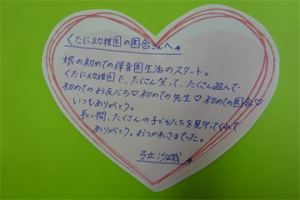 くたに幼稚園の園舎さんへ
娘の初めての保育園生活のスタート。
くたに幼稚園で、たくさん笑って、たくさん遊んで
初めてのお友だち♡初めての先生♡初めての園舎♡
いつもありがとう。
長い間、たくさんの子どもたちを見守ってくれて
ありがとう。おつかれさまでした。